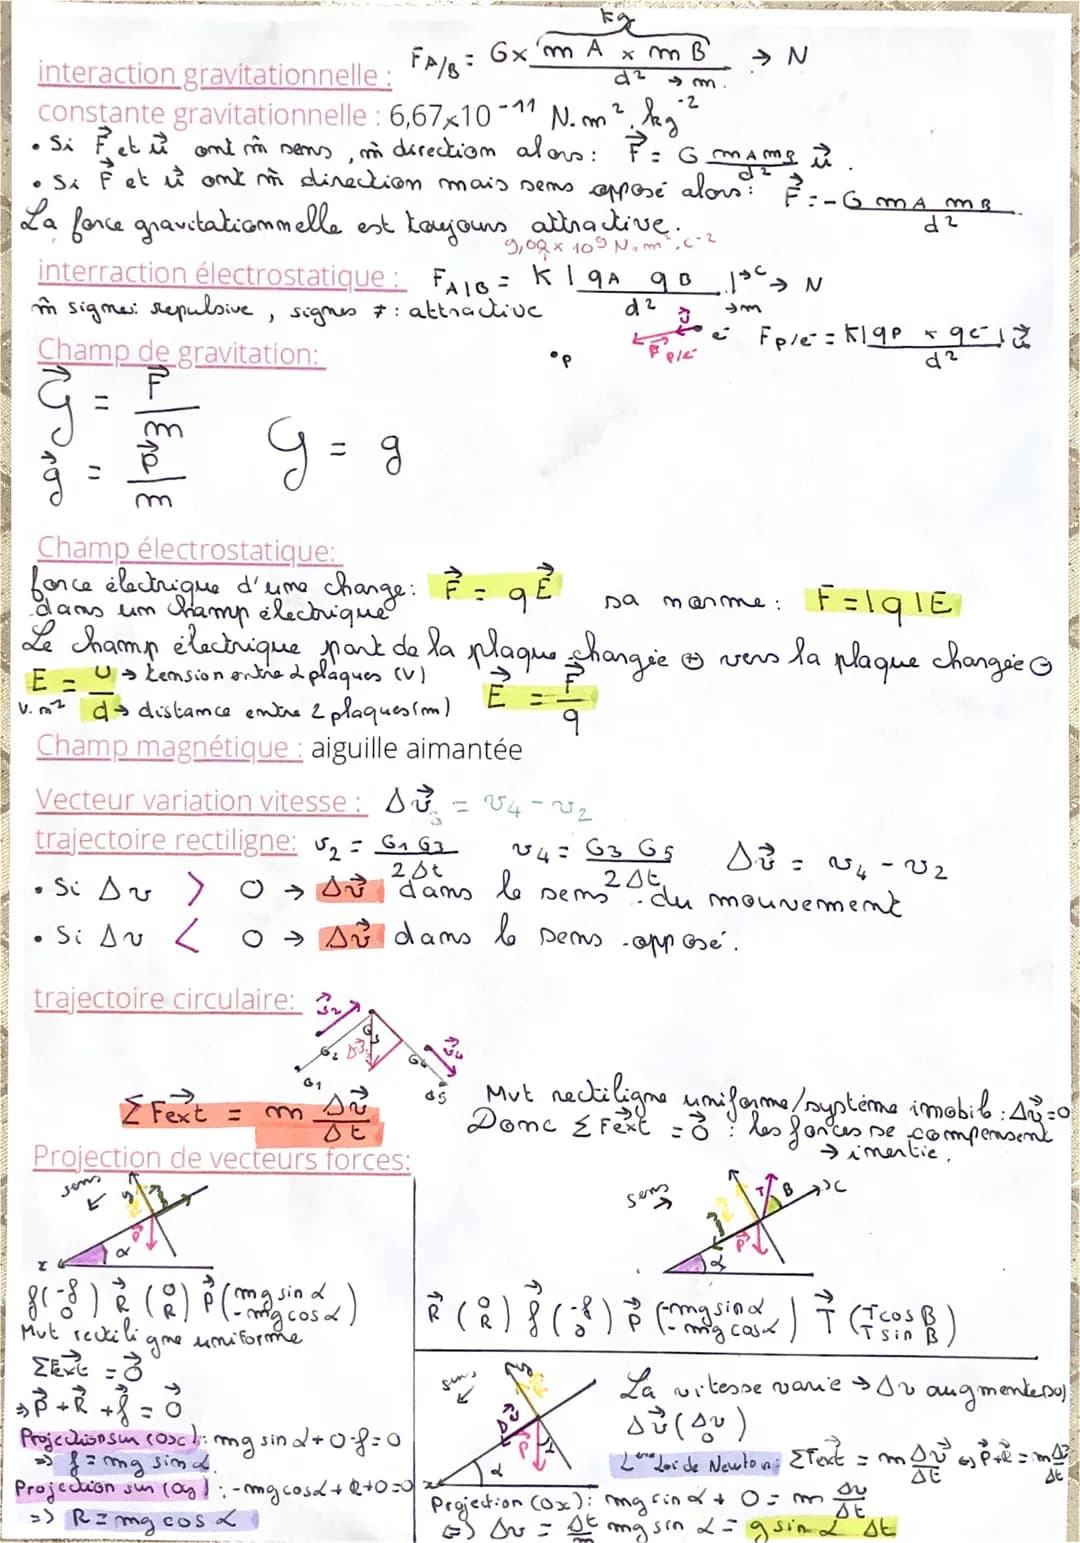 kg
interaction gravitationnelle : FA/B = G x mA x mB / d² → m. → N
constante gravitationnelle : 6,67x10⁻¹¹ N.m².kg⁻²
• Si F⃗ et u⃗ ont m̂ sens, m̂ direction alors : F⃗ = G mAmB / d² u⃗.
• Si F⃗ et u⃗ ont m̂ direction mais sens opposé alors : F⃗ = - G mA mB / d²
La force gravitationnelle est toujours attractive.
9,09 x 10⁹ N.m².C⁻²
interraction électrostatique : FA/B = K |qA qB| → C / d² → m → N
m̂ signe : repulsive, signes ≠ : attractive
u⃗ e⁻ F⃗ p/e⁻ °p Fp/e⁻ = K |qp x qe⁻| / d² u⃗
Champ de gravitation:
G⃗ = F⃗ / m
g⃗ = P⃗ / m
G = g
Champ électrostatique:
force électrique d'une charge : F⃗ = qE⃗ sa norme : F = |q|E
dans un champ électrique
Le champ électrique part de la plaque chargée ⊕ vers la plaque chargée ⊖
E = U → tension entre 2 plaques (V) E⃗ = F⃗ / q
V.m² d → distance entre 2 plaques (m)
Champ magnétique : aiguille aimantée
Vecteur variation vitesse : Δv⃗₃ = v₄ - v₂
trajectoire rectiligne: v₂ = G₁G₃ / 2Δt v₄ = G₃G₅ / 2Δt Δv⃗ = v₄ - v₂
• Si Δv > 0 → Δv⃗ dans le sens du mouvement
• Si Δv < 0 → Δv⃗ dans le sens opposé.
trajectoire circulaire: v⃗₂ G₁ G₂ G₃ Δv⃗₃ G₄ v⃗₄ G₅
ΣF⃗ext = m Δv⃗ / Δt
Mvt rectiligne uniforme/système imobil : Δv⃗=0
Donc ΣF⃗ext = 0⃗ : les forces se compensent
→ inertie.
Projection de vecteurs forces:
sens y P⃗ α x
f⃗(-f 0) R⃗(0 R) P⃗(mg sin α -mg cos α)
Mvt rectiligne uniforme
ΣF⃗ext = 0⃗
⇒ P⃗ + R⃗ + f⃗ = 0⃗
Projection sur (Ox) : mg sin α + 0 - f = 0
⇒ f = mg sin α
Projection sur (Oy) : -mg cos α + R + 0 = 0
=> R = mg cos α
sens T β x P⃗ α
R⃗(0 R) f⃗(-f 0) P⃗(-mg sin α -mg cos α) T⃗(T cos β T sin β)
sens Δv⃗ P⃗ α α x
La vitesse varie → Δv augmente
Δv⃗(Δv 0)
2ème Loi de Newton : ΣF⃗ext = m Δv⃗ / Δt ⇔ P⃗+R⃗ = m Δv⃗ / Δt
Projection (Ox) : mg sin α + 0 = m Δv / Δt
⇔ Δv = Δt / m mg sin α = g sin α Δt